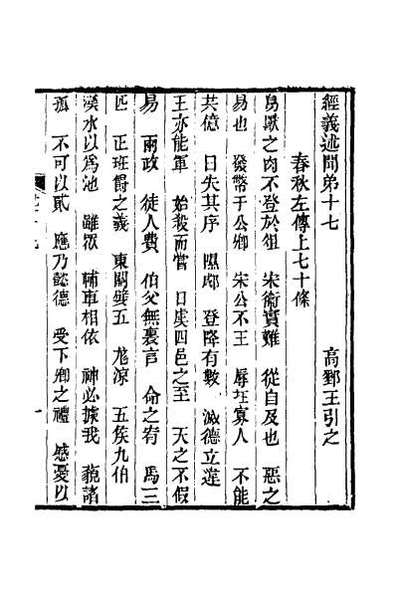 經義述聞弟十七　高郵王引之
春秋左傳上七十條
鳥獸之肉不登於俎　宋衞實難　從自及也　惡之
易也　發幣于公卿　宋公不王　辱在寡人　不能
共億　日失其序　隰郕　登降有數　滅德立違
王亦能軍　始殺而嘗　日虞四邑之至　天之不假
易　兩政　徒人費　伯父無裏言　命之宥　馬三
匹　正班爵之義　東關嬖五　尨涼　五矦九伯
漢水以爲池　雖眾　輔車相依　神必據我　藐諸
孤　不可以貳　應乃懿德　受下卿之禮　慼憂以
一